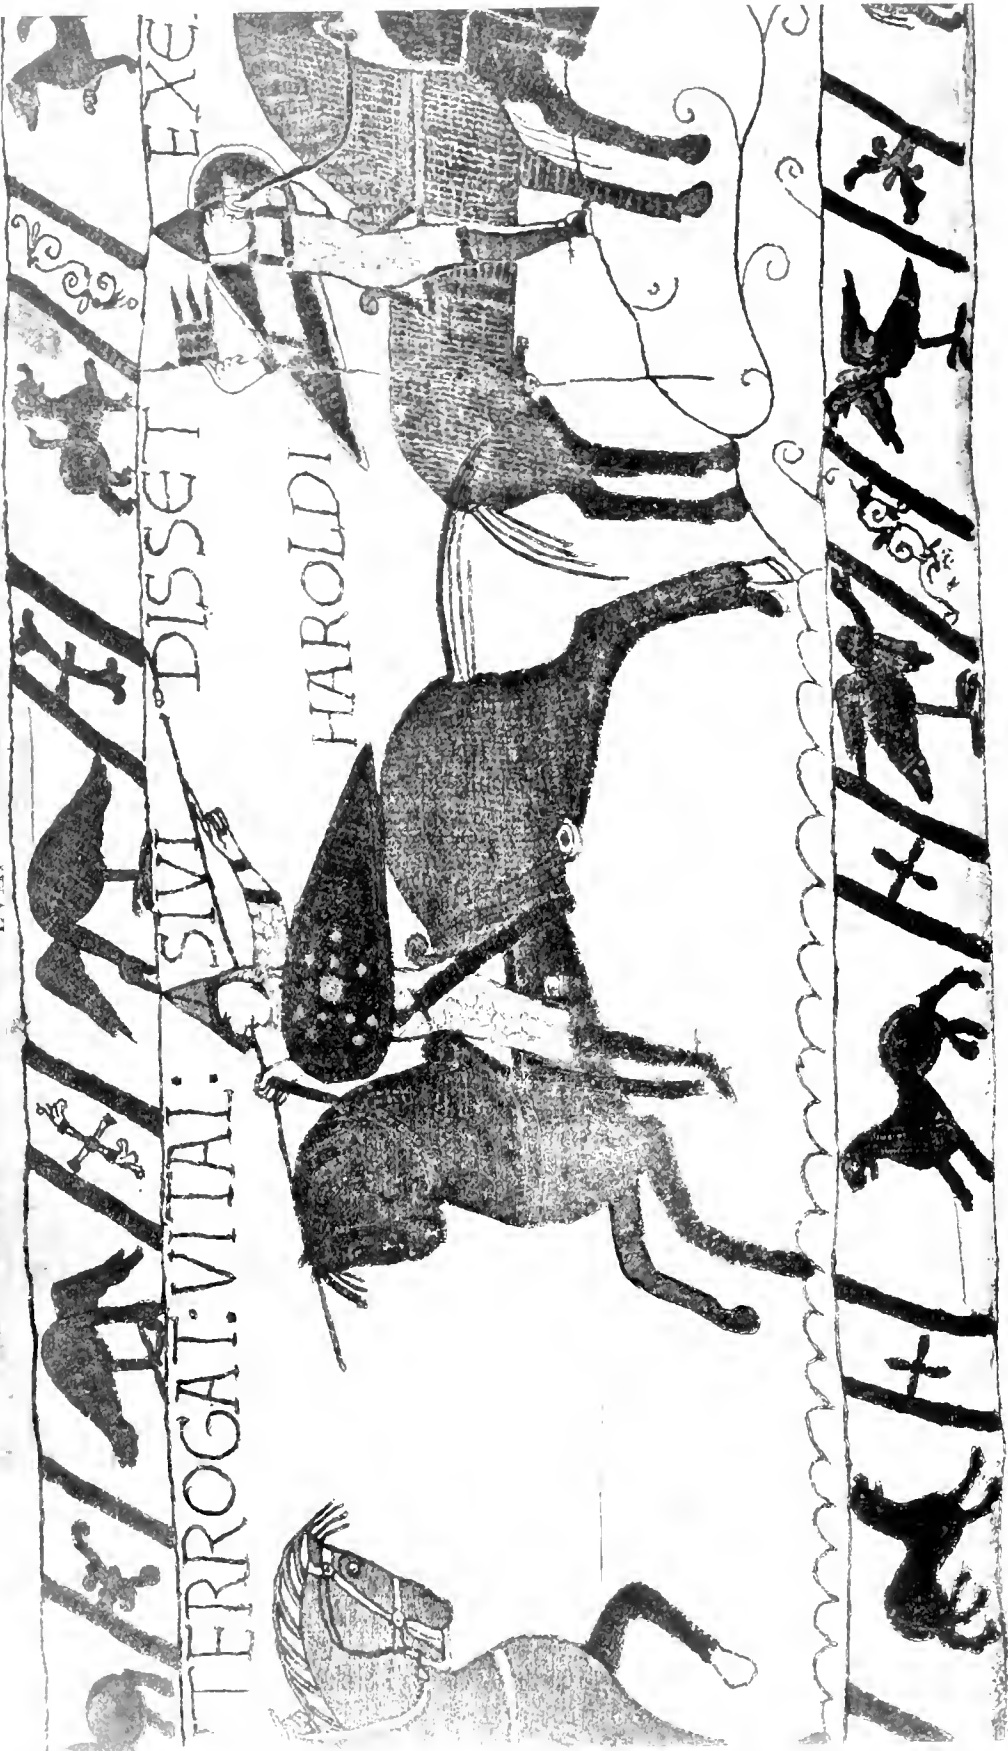 TERROGAT: VITAL: SIVI DISSET EXE
HAROLDI